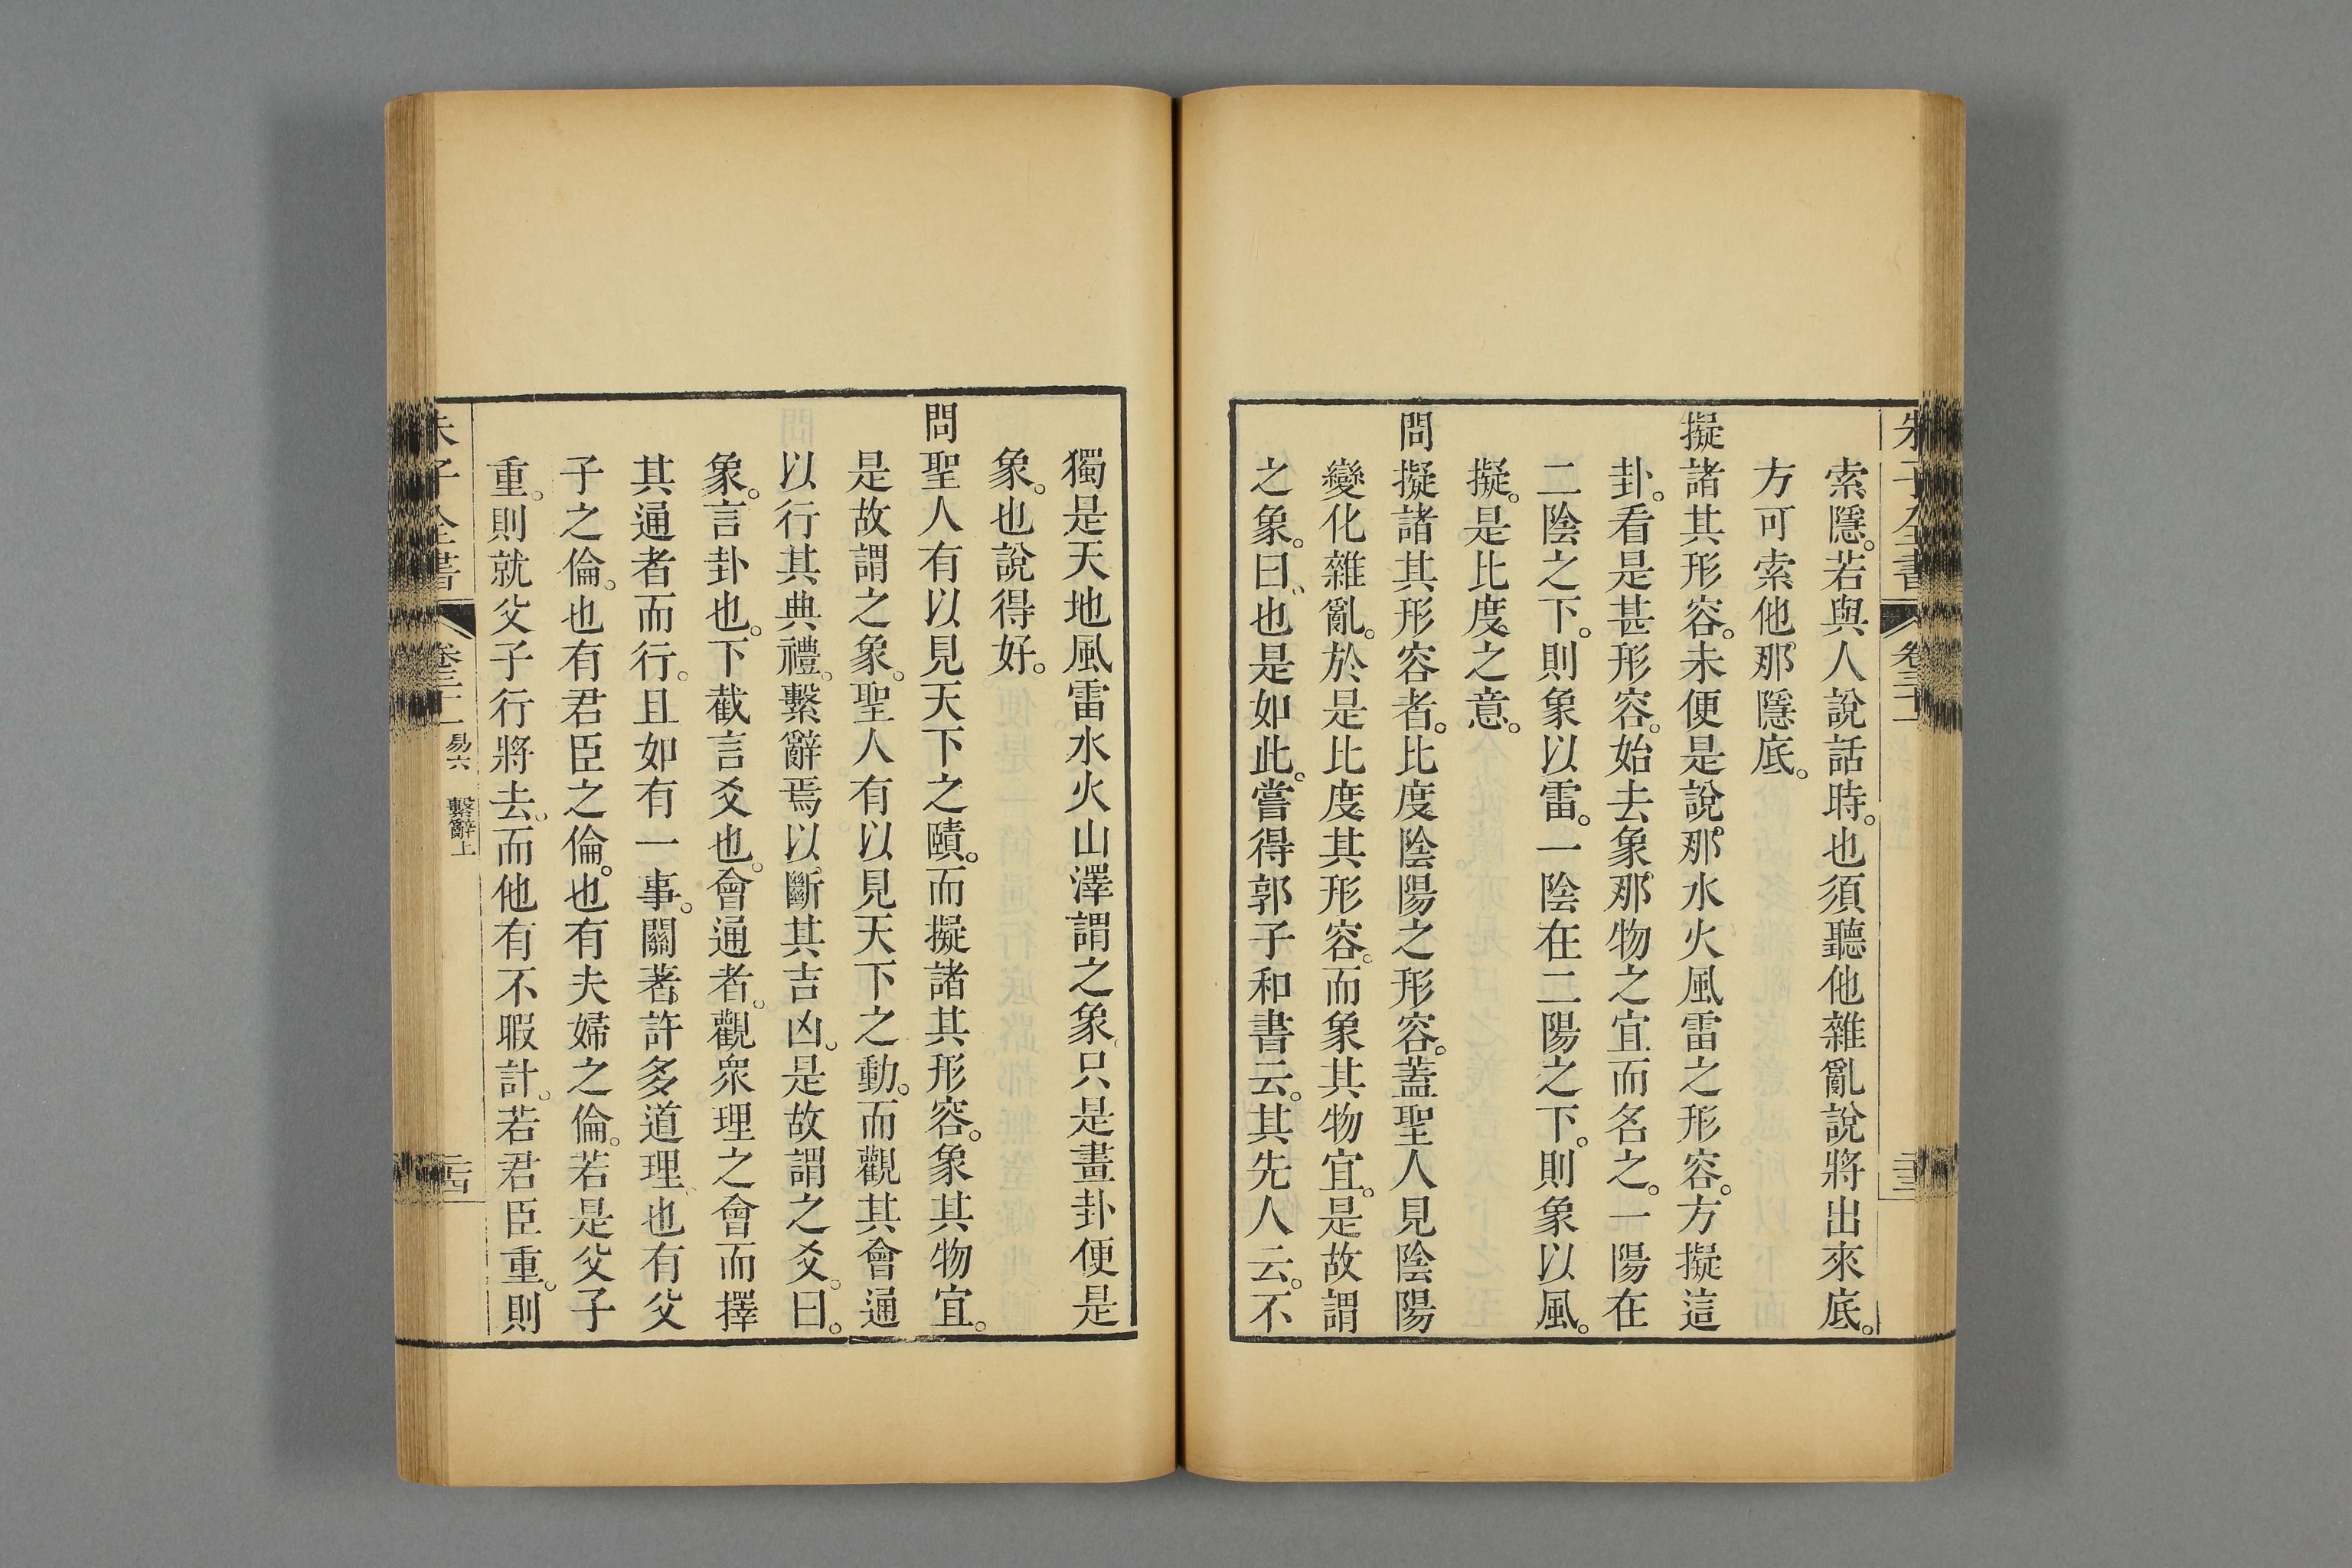 朱子全書 卷三十一 二十三
索隱。若與人說話時。也須聽他雜亂說將出來底。
方可索他那隱底。
擬諸其形容。未便是說那水火風雷之形容。方擬這
卦。看是甚形容。始去象那物之宜而名之。一陽在
二陰之下。則象以雷。一陰在二陽之下。則象以風。
擬。是比度之意。
問擬諸其形容者。比度陰陽之形容。蓋聖人見陰陽
變化雜亂。於是比度其形容。而象其物宜。是故謂
之象。曰、也是如此。嘗得郭子和書云。其先人云。不
獨是天地風雷水火山澤謂之象、只是畫卦便是
象。也說得好。
問聖人有以見天下之賾。而擬諸其形容。象其物宜。
是故謂之象。聖人有以見天下之動。而觀其會通
以行其典禮。繫辭焉以斷其吉凶。是故謂之爻。曰。
象。言卦也。下截言爻也。會通者。觀衆理之會而擇
其通者而行。且如有一事。關著許多道理、也有父
子之倫。也有君臣之倫。也有夫婦之倫。若是父子
重。則就父子行將去。而他有不暇計。若君臣重。則
朱子全書 卷三十一 易六 繫辭上